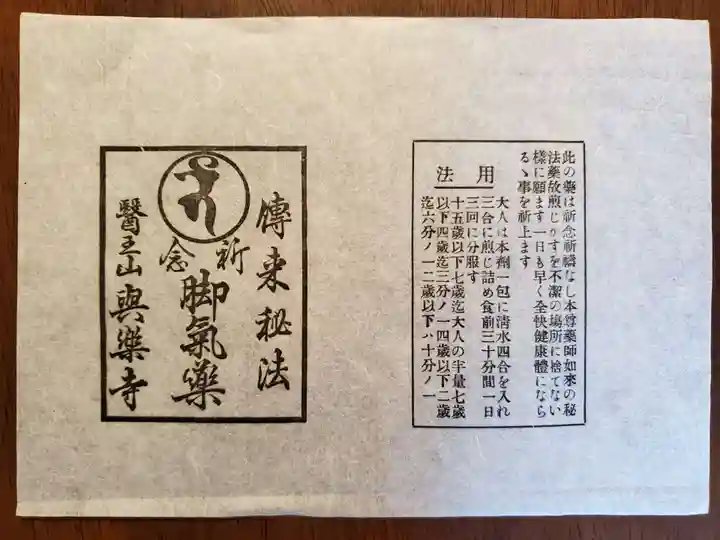 此の藥は祈念祈禱なし本尊藥師如來の秘
法藥故煎じかすを不潔の場所に捨てない
樣に願ます一日も早く全快健康體になら
るゝ事を祈上ます
用法
大人は本劑一包に淸水四合を入れ
三合に煎じ詰め食前三十分間一日
三回に分服す
十五歲以下七歲迄大人の半量七歲
以下四歲迄三分ノ一四歲以下二歲
迄六分ノ一二歲以下ハ十分ノ一
傳來秘法
祈念
脚氣藥
醫王山與樂寺